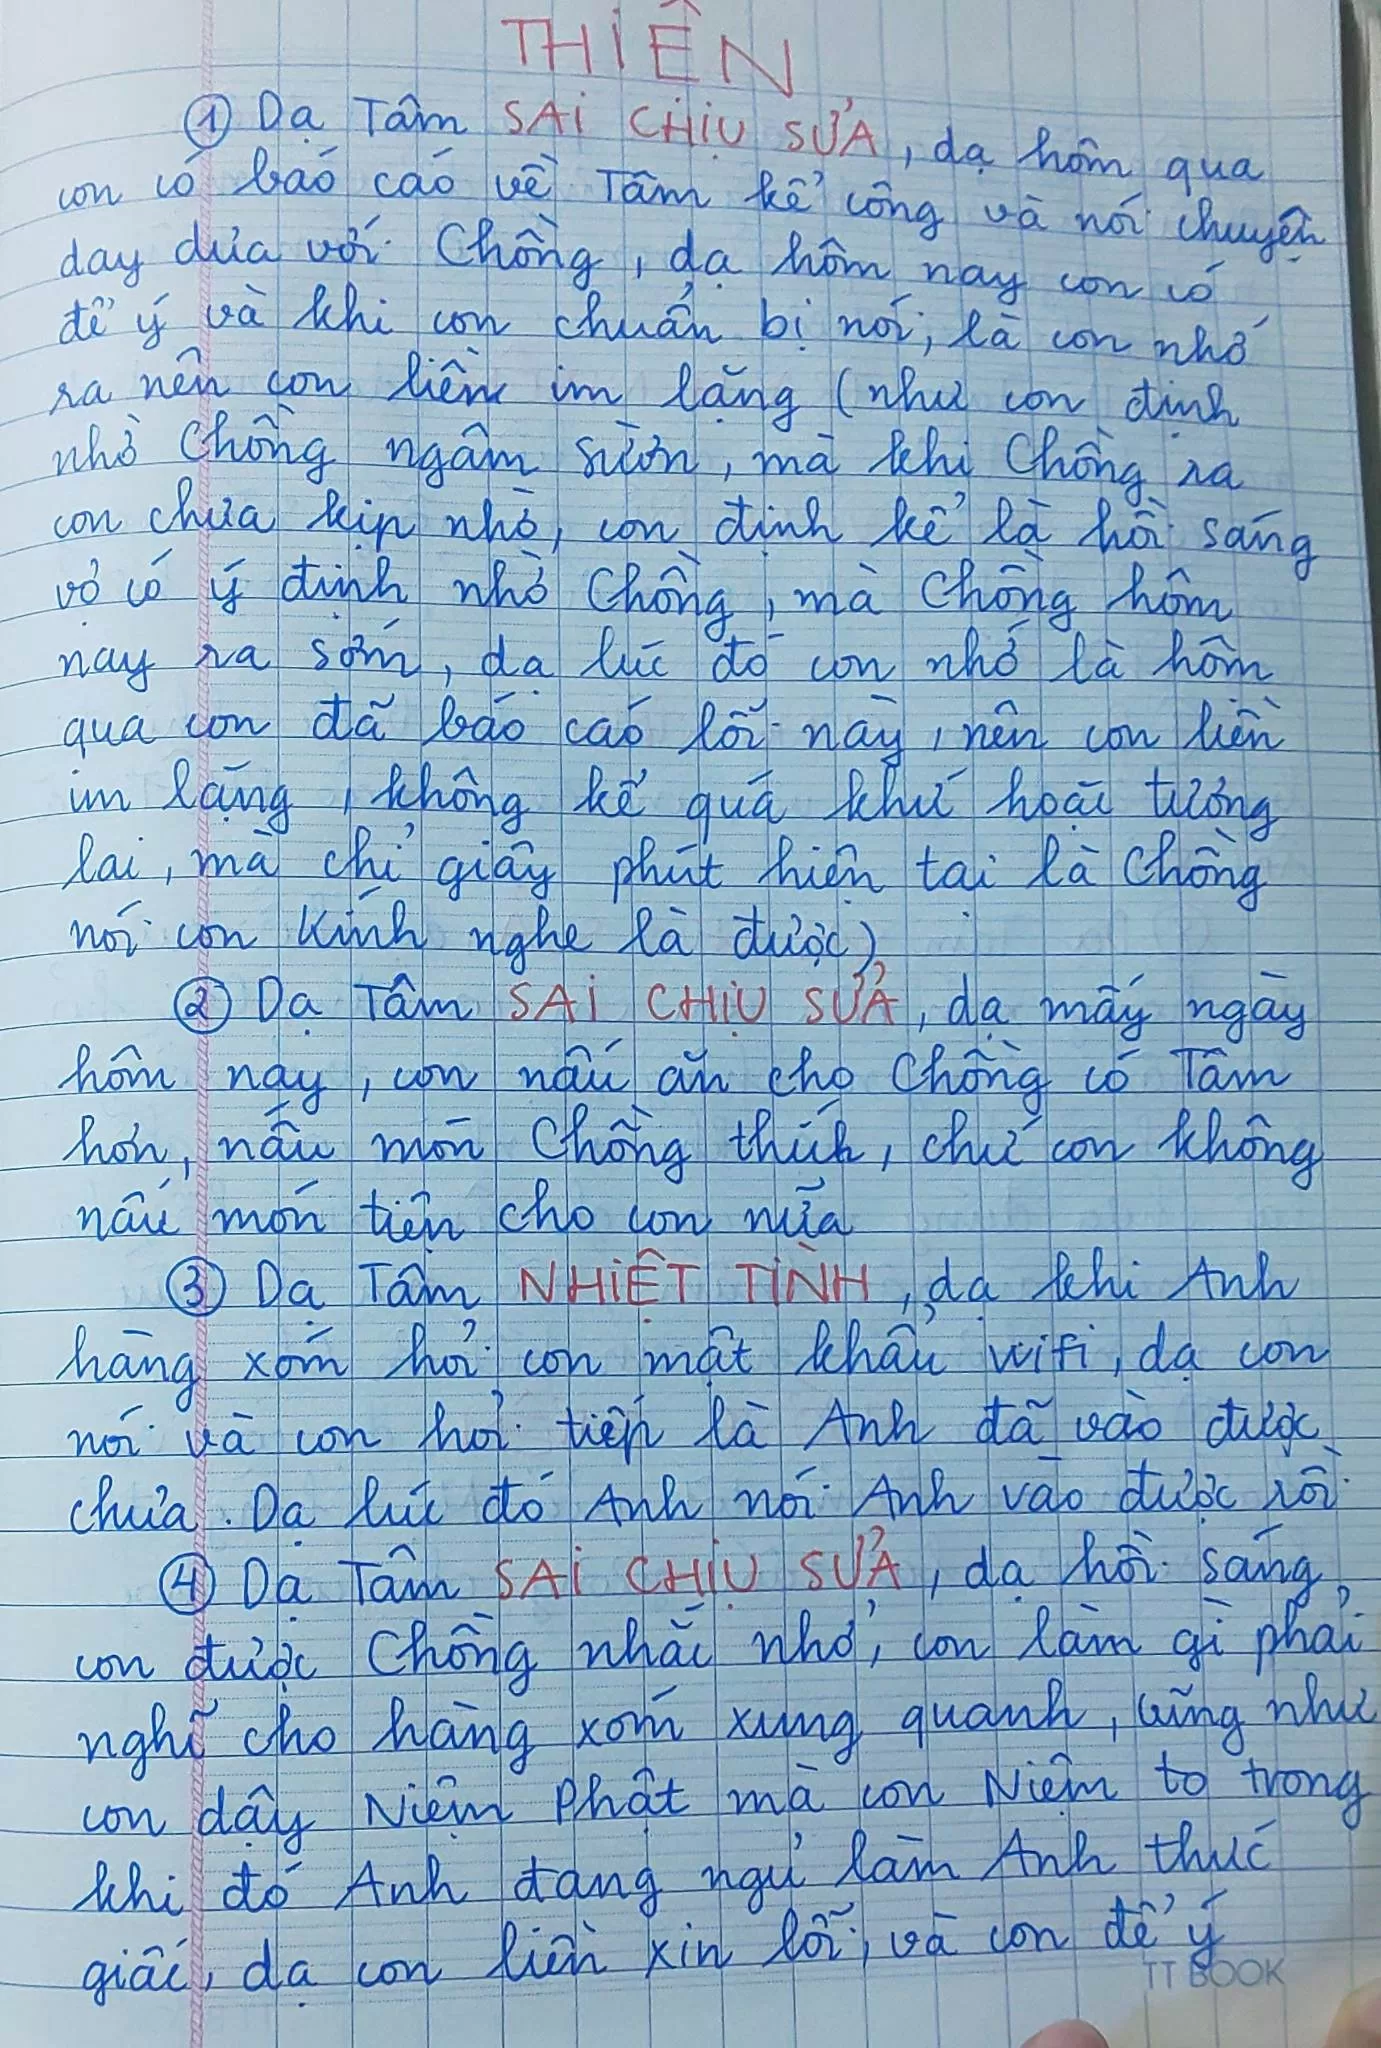 THIỆN
① Dạ Tâm SAI CHỊU SỬA, dạ hôm qua
con có báo cáo về Tâm kể công và nói chuyện
day dưa với Chồng, dạ hôm nay con có
để ý và khi con chuẩn bị nói, là con nhớ
ra nên con liền im lặng (như con định
nhờ Chồng ngâm sườn, mà khi Chồng ra
con chưa kịp nhờ, con định kể là hồi sáng
vợ có ý định nhờ Chồng, mà Chồng hôm
nay ra sớm, dạ lúc đó con nhớ là hôm
qua con đã báo cáo lỗi này, nên con liền
im lặng, không kể quá khứ hoài tương
lai, mà chỉ giây phút hiện tại là Chồng
nói con Kính nghe là được)
② Dạ Tâm SAI CHỊU SỬA, dạ mấy ngày
hôm nay, con nấu ăn cho Chồng có Tâm
hơn, nấu món Chồng thích, chứ con không
nấu món tiện cho con nữa
③ Dạ Tâm NHIỆT TÌNH, dạ khi Anh
hàng xóm hỏi con mật khẩu wifi, dạ con
nói và con hỏi tiếp là Anh đã vào được
chưa. Dạ lúc đó Anh nói Anh vào được rồi
④ Dạ Tâm SAI CHỊU SỬA, dạ hồi sáng
con được Chồng nhắc nhở, con làm gì phải
nghĩ cho hàng xóm xung quanh, cũng như
con dậy Niệm Phật mà con Niệm to trong
khi đó Anh đang ngủ làm Anh thức
giấc, dạ con liền xin lỗi, và con để ý
TT BOOK